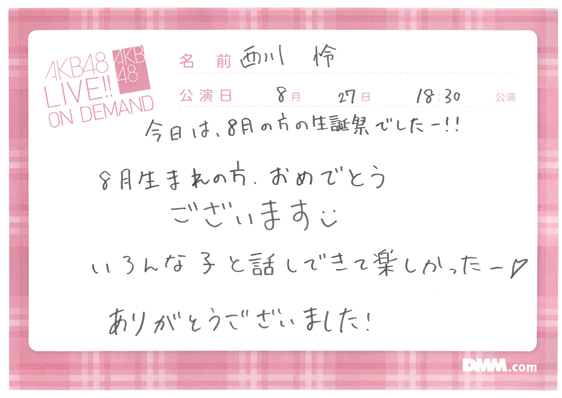 AKB48
LIVE!!
ON DEMAND
AKB
48
名 前 西川 怜
公演日 8月 27日 18:30 公演
今日は、8月の方の生誕祭でしたー!!
8月生まれの方、おめでとう
ございます
いろんな子と話しできて楽しかったー♡
ありがとうございました!
DMM.com